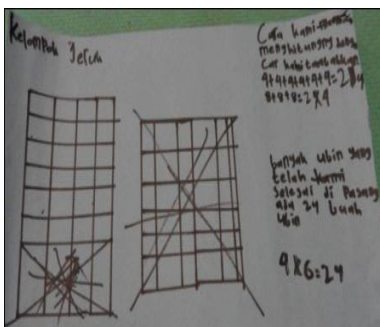 Kelompok Jeruk
Cara kami
menghitung
Car kami tambahkan
4+4+4+4+4+4=24
8+8+8=24
banyak ubin yang
telah kami
selesai di Pasang
ada 24 buah
ubin
4X6=24